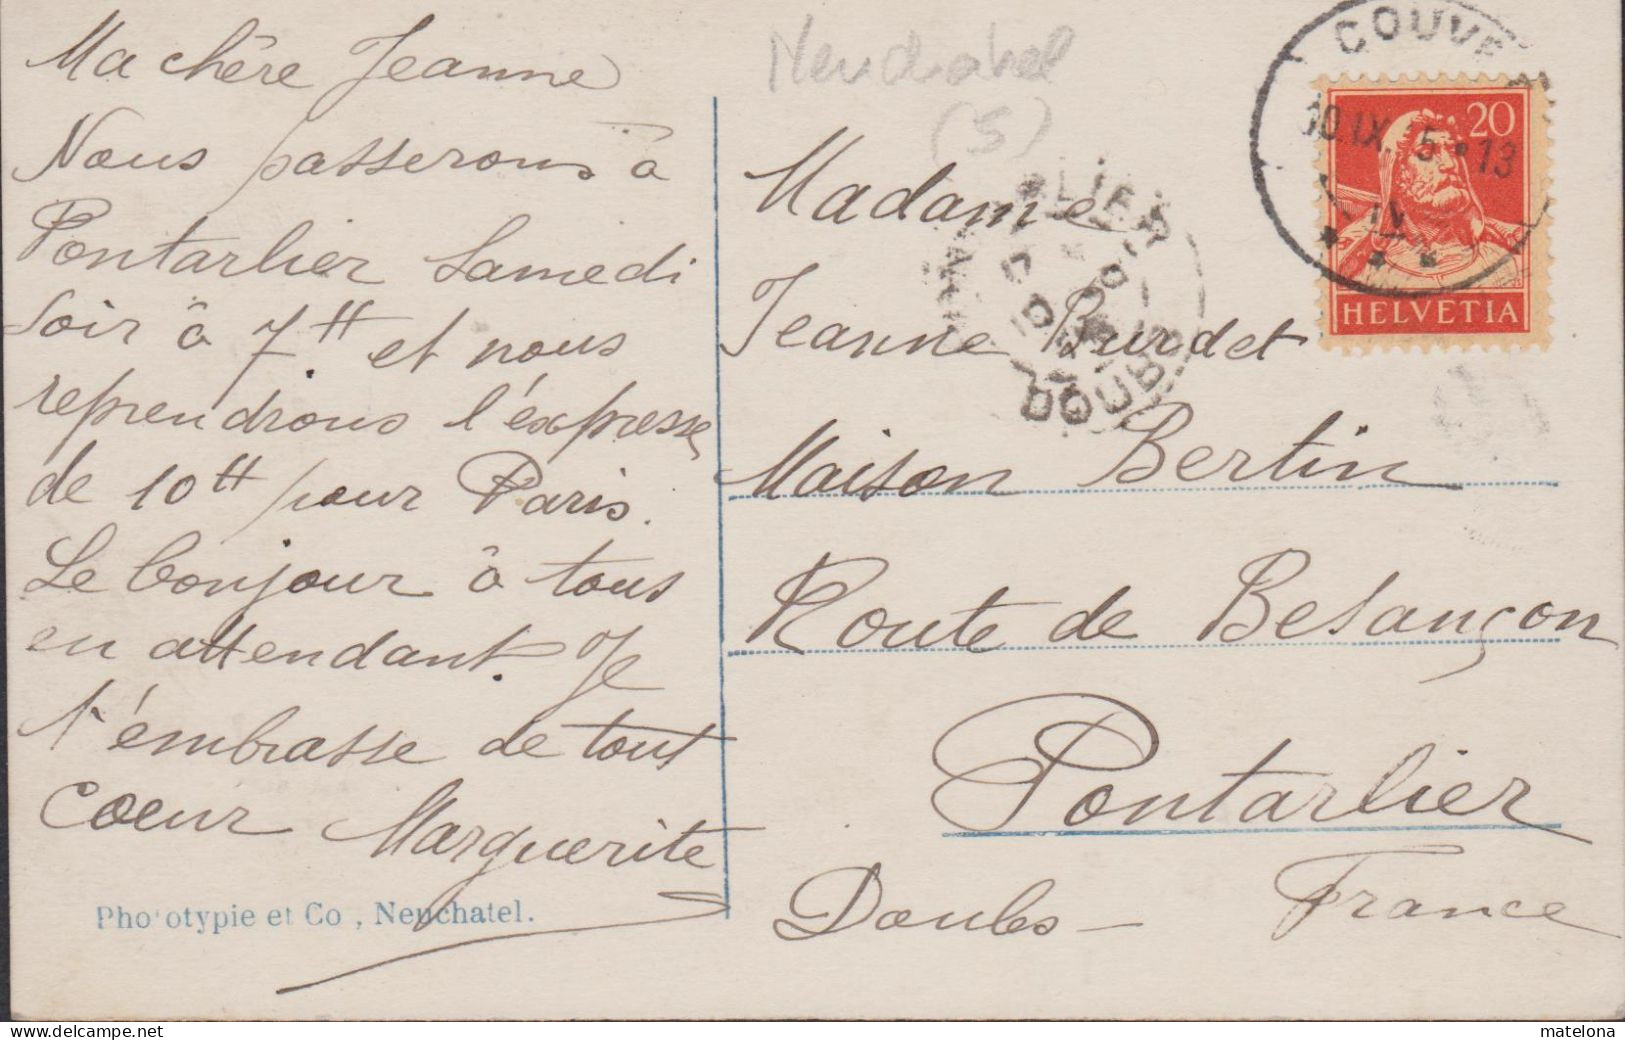 Ma chère Jeanne
Nous passerons à
Pontarlier Samedi
soir à 7 H et nous
reprendrons l'expresse
de 10 H pour Paris.
Le bonjour à tous
en attendant. Je
t'embrasse de tout
coeur Marguerite
Phototypie et Co, Neuchatel.
Neuchatel
(5)
COUVET
10.IX. 5•13
20
HELVETIA
DOUBS
Madame
Jeanne Burdet
Maison Bertin
Route de Besançon
Pontarlier
Doubs - France
matelona